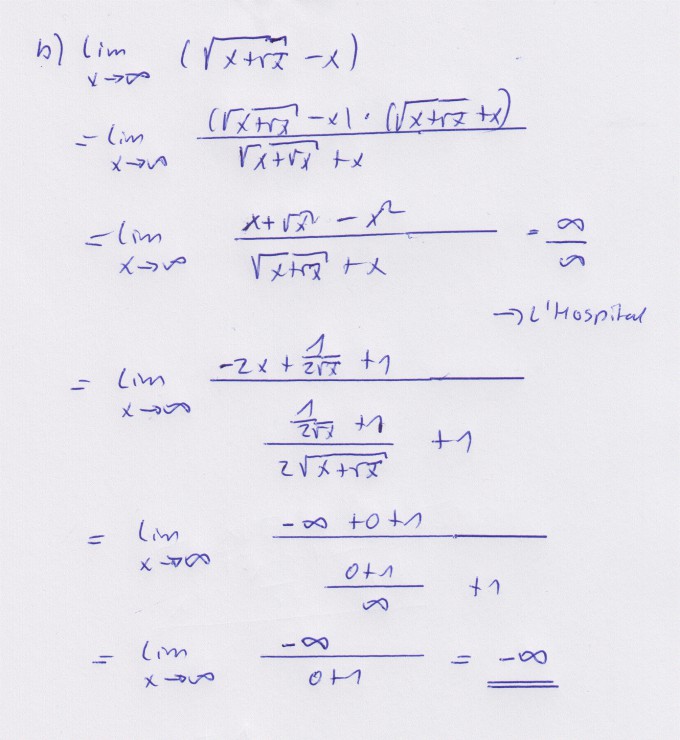 b) lim x→∞ (√(x+√x) - x)
= lim x→∞ ((√(x+√x) - x) · (√(x+√x) + x)) / (√(x+√x) + x)
= lim x→∞ (x+√x - x²) / (√(x+√x) + x) = ∞/∞
→ L'Hospital
= lim x→∞ (-2x + 1/(2√x) + 1) / ((1/(2√x) + 1)/(2√(x+√x)) + 1)
= lim x→∞ (-∞ + 0 + 1) / ((0+1)/∞ + 1)
= lim x→∞ (-∞)/(0+1) = -∞